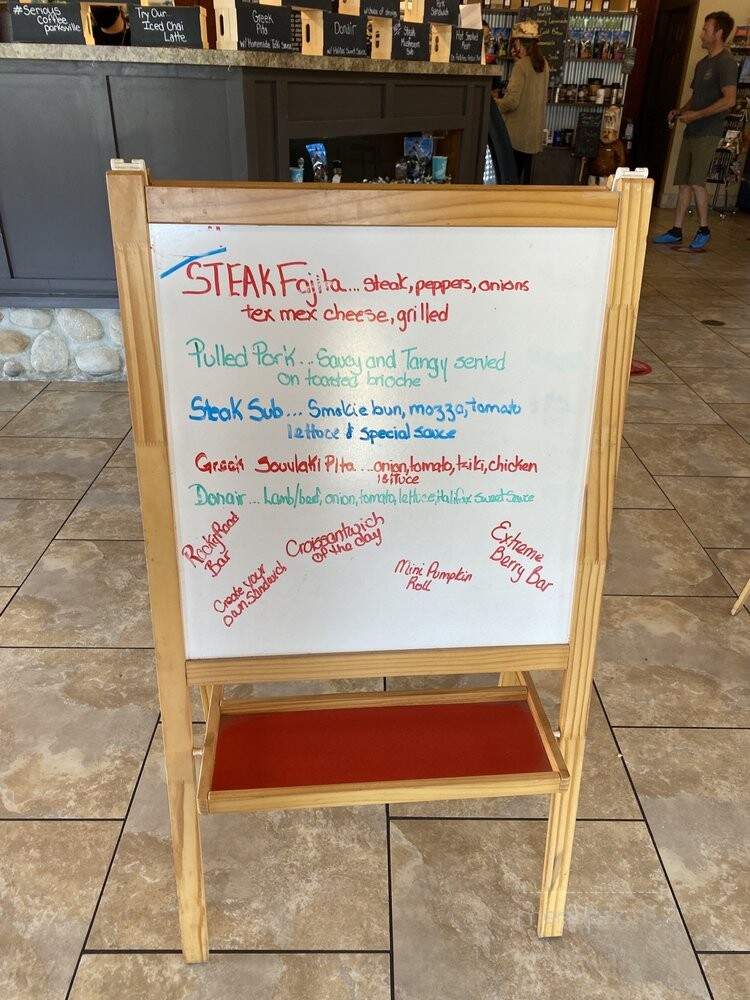 #Serious
Coffee
parksville
Try Our
Iced Chai
Latte
Greek
Pita
Donair
STEAK Fajita.... steak, peppers, onions
tex mex cheese, grilled
Pulled Pork... Saucy and Tangy served
on toasted brioche
Steak Sub... Smokie bun, mozza, tomato
lettuce & special sauce
Greek Souvlaki Pita...onion, tomato, tziki, chicken
lettuce
Donair... Lamb/beef, onion, tomato, lettuce, Halifax Sweet Sauce
Rocky Road
Bar
Create your
own Sandwich
Croissantwich
of the day
Mini Pumpkin
Roll
Extreme
Berry Bar